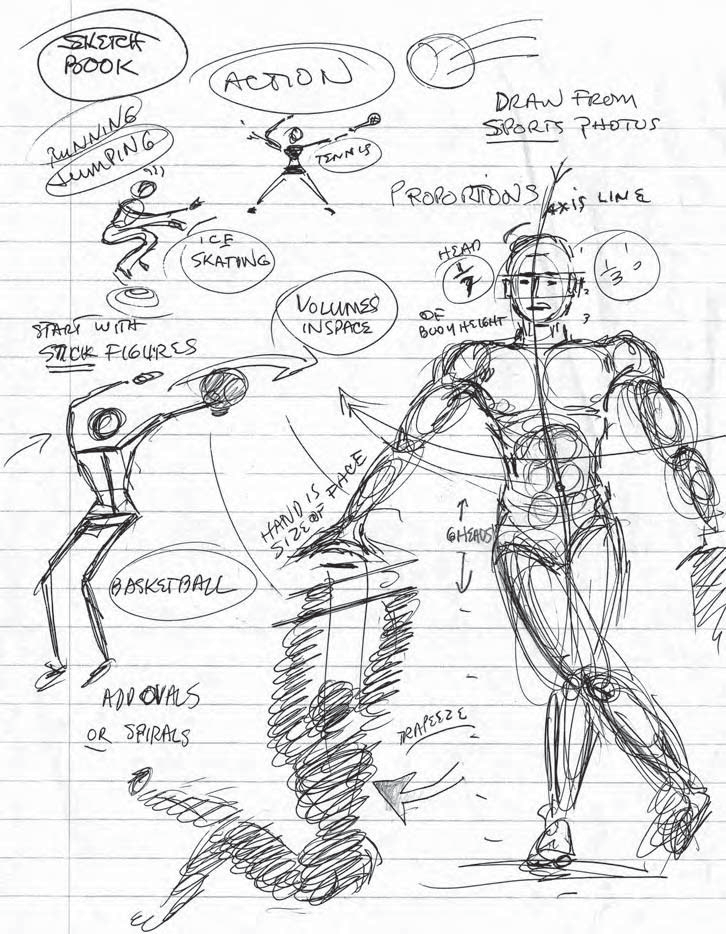 SKETCH
BOOK
ACTION
DRAW FROM
SPORTS PHOTOS
RUNNING
JUMPING
TENNIS
PROPORTIONS
AXIS LINE
ICE
SKATING
HEAD
1/7
OF
BODY HEIGHT
1/3
1
2
3
VOLUMES
IN SPACE
START WITH
STICK FIGURES
HAND IS
SIZE OF FACE
6 HEADS
BASKETBALL
ADD OVALS
OR SPIRALS
TRAPEZE